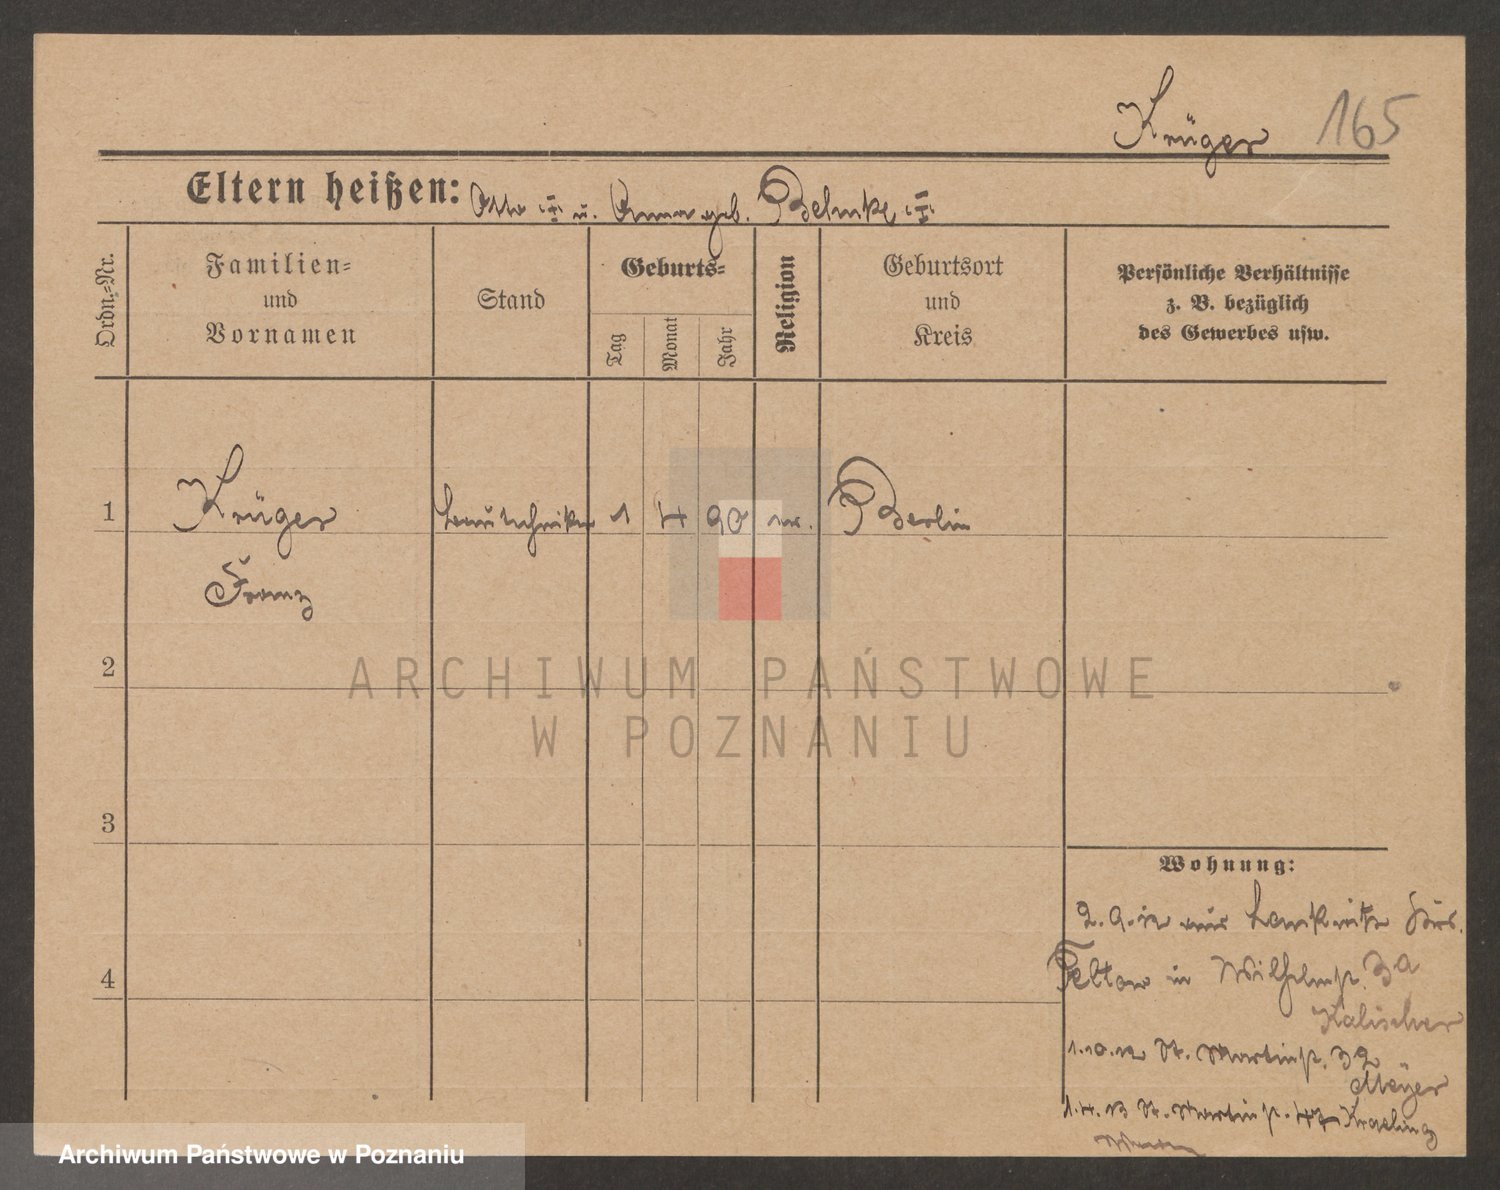 Krüger 165
Eltern heißen: Otto u. Anna geb. Behnke
Ordn.-Nr.
Familien-
und
Vornamen
Stand
Geburts-
Tag
Monat
Jahr
Religion
Geburtsort
und
Kreis
Persönliche Verhältnisse
z. B. bezüglich
des Gewerbes usw.
1 Krüger 1 4 90 Berlin
Franz
2
ARCHIWUM PAŃSTWOWE
W POZNANIU
3
Wohnung:
2.9.12 aus Lankwitz
4 Teltow in Wilhelmstr. 39
Kalischer
1.10.12 St. Martinstr. 32
Meyer
1.4.13 St. Martinstr. 47
Archiwum Państwowe w Poznaniu